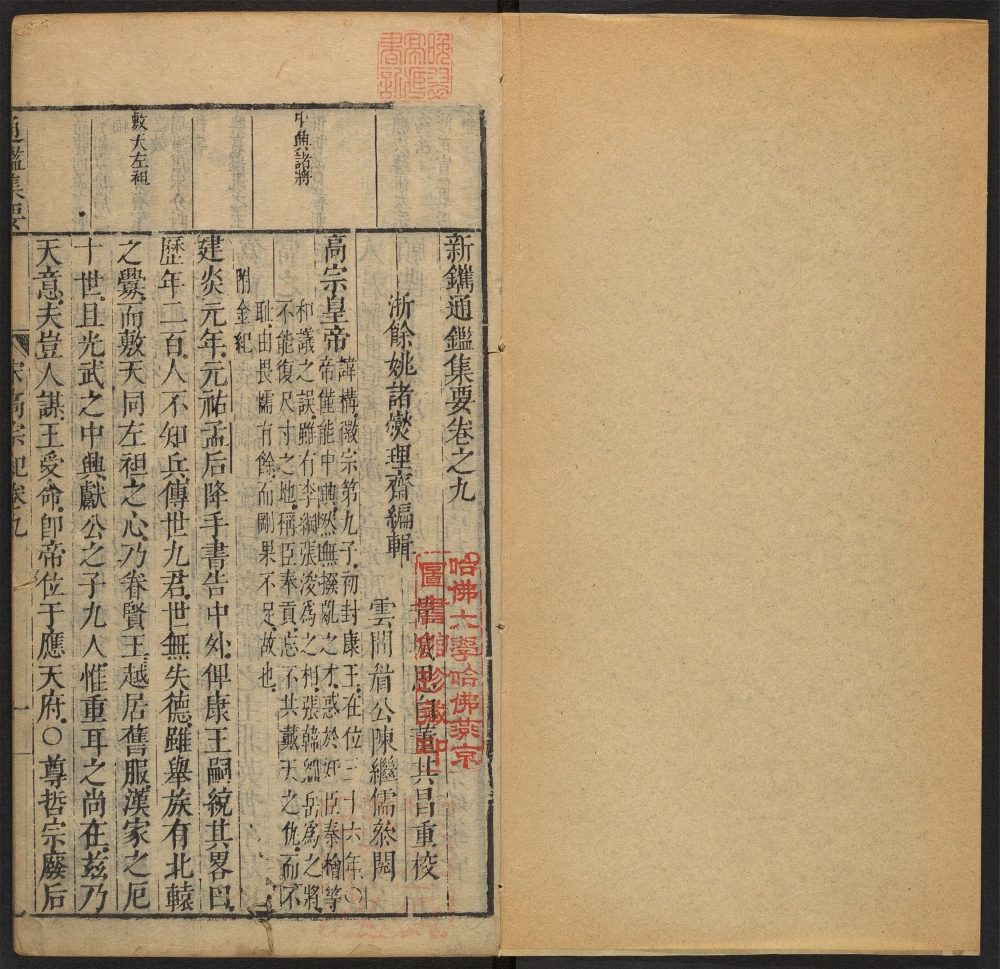 新鐫通鑑集要卷之九
浙餘姚諸燮理齋編輯
董其昌重校
雲間眉公陳繼儒叅閱
高宗皇帝
諱構徽宗第九子初封康王在位三十六年〇
帝僅能中興然無撥亂之才惑於奸臣秦檜等
和議之誤雖有李綱張浚爲之相張韓劉岳爲之將
不能復尺寸之地稱臣奉貢忘不共戴天之仇而不
耻由畏懦有餘而剛果不足故也
附金紀
中興諸將
建炎元年元祐孟后降手書告中外俾康王嗣統其畧曰
歷年二百人不知兵傳世九君世無失德雖舉族有北轅
敷天左袒
之釁而敷天同左袒之心乃眷賢王越居舊服漢家之厄
十世且光武之中興獻公之子九人惟重耳之尚在茲乃
天意夫豈人謀王受命卽帝位于應天府〇尊哲宗廢后
通鑑集要
宋高宗紀卷九
一
哈佛大學哈佛燕京
圖書館珍藏印